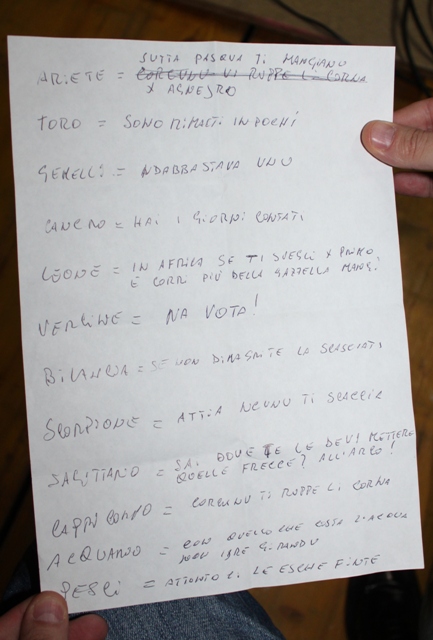 SUTTA PASQUA TI MANGIANU
ARIETE = CORCUNU VI RUPPE LI CORNA
X AGNEDRO
TORO = SONO RIMASTI IN POCHI
GEMELLI = NDABBASTAVA UNU
CANCRO = HAI I GIORNI CONTATI
LEONE = IN AFRICA SE TI SVEGLI X PRIMO
E CORRI PIÙ DELLA GAZZELLA MANGI
VERGINE = NA VOTA!
BILANCIA = SE NON DIMAGRITE LA SCASCIATI
SCORPIONE = ATTIA NCUNU TI SCACCIA
SAGITTARIO = SAI DOVE TE LE DEVI METTERE
QUELLE FRECCE? ALL'ARCO!
CAPRICORNO = CORCUNU TI RUPPE LI CORNA
ACQUARIO = CON QUELLO CHE COSTA L'ACQUA
NON GIRANDU
PESCI = ATTENTO LE ESCHE FINTE